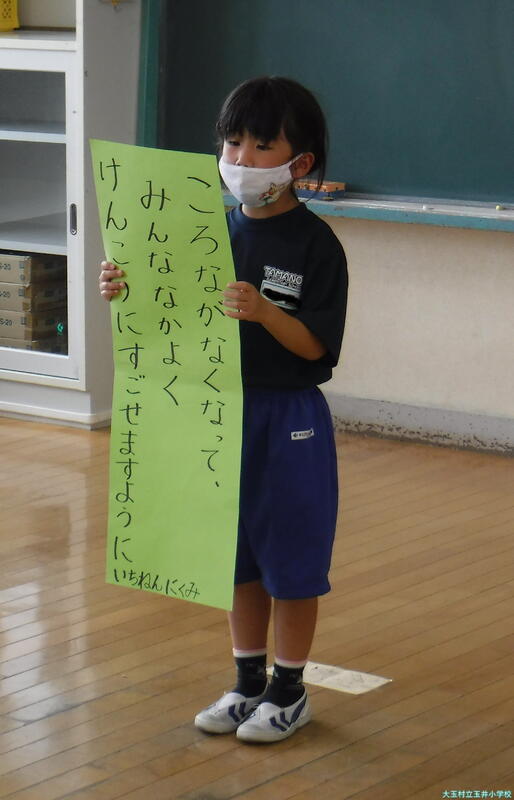 ころながなくなって、
みんななかよく
けんこうにすごせますように
いちねんにくみ
TAMANO
S-20
S-20
大玉村立玉井小学校